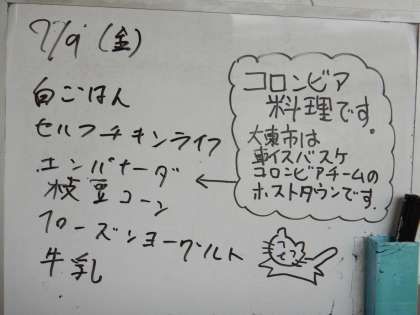 7/9(金)
白ごはん
セルフチキンライス
エンパナーダ
枝豆コーン
フローズンヨーグルト
牛乳
コロンビア
料理です。
大東市は
車イスバスケ
コロンビアチームの
ホストタウンです。